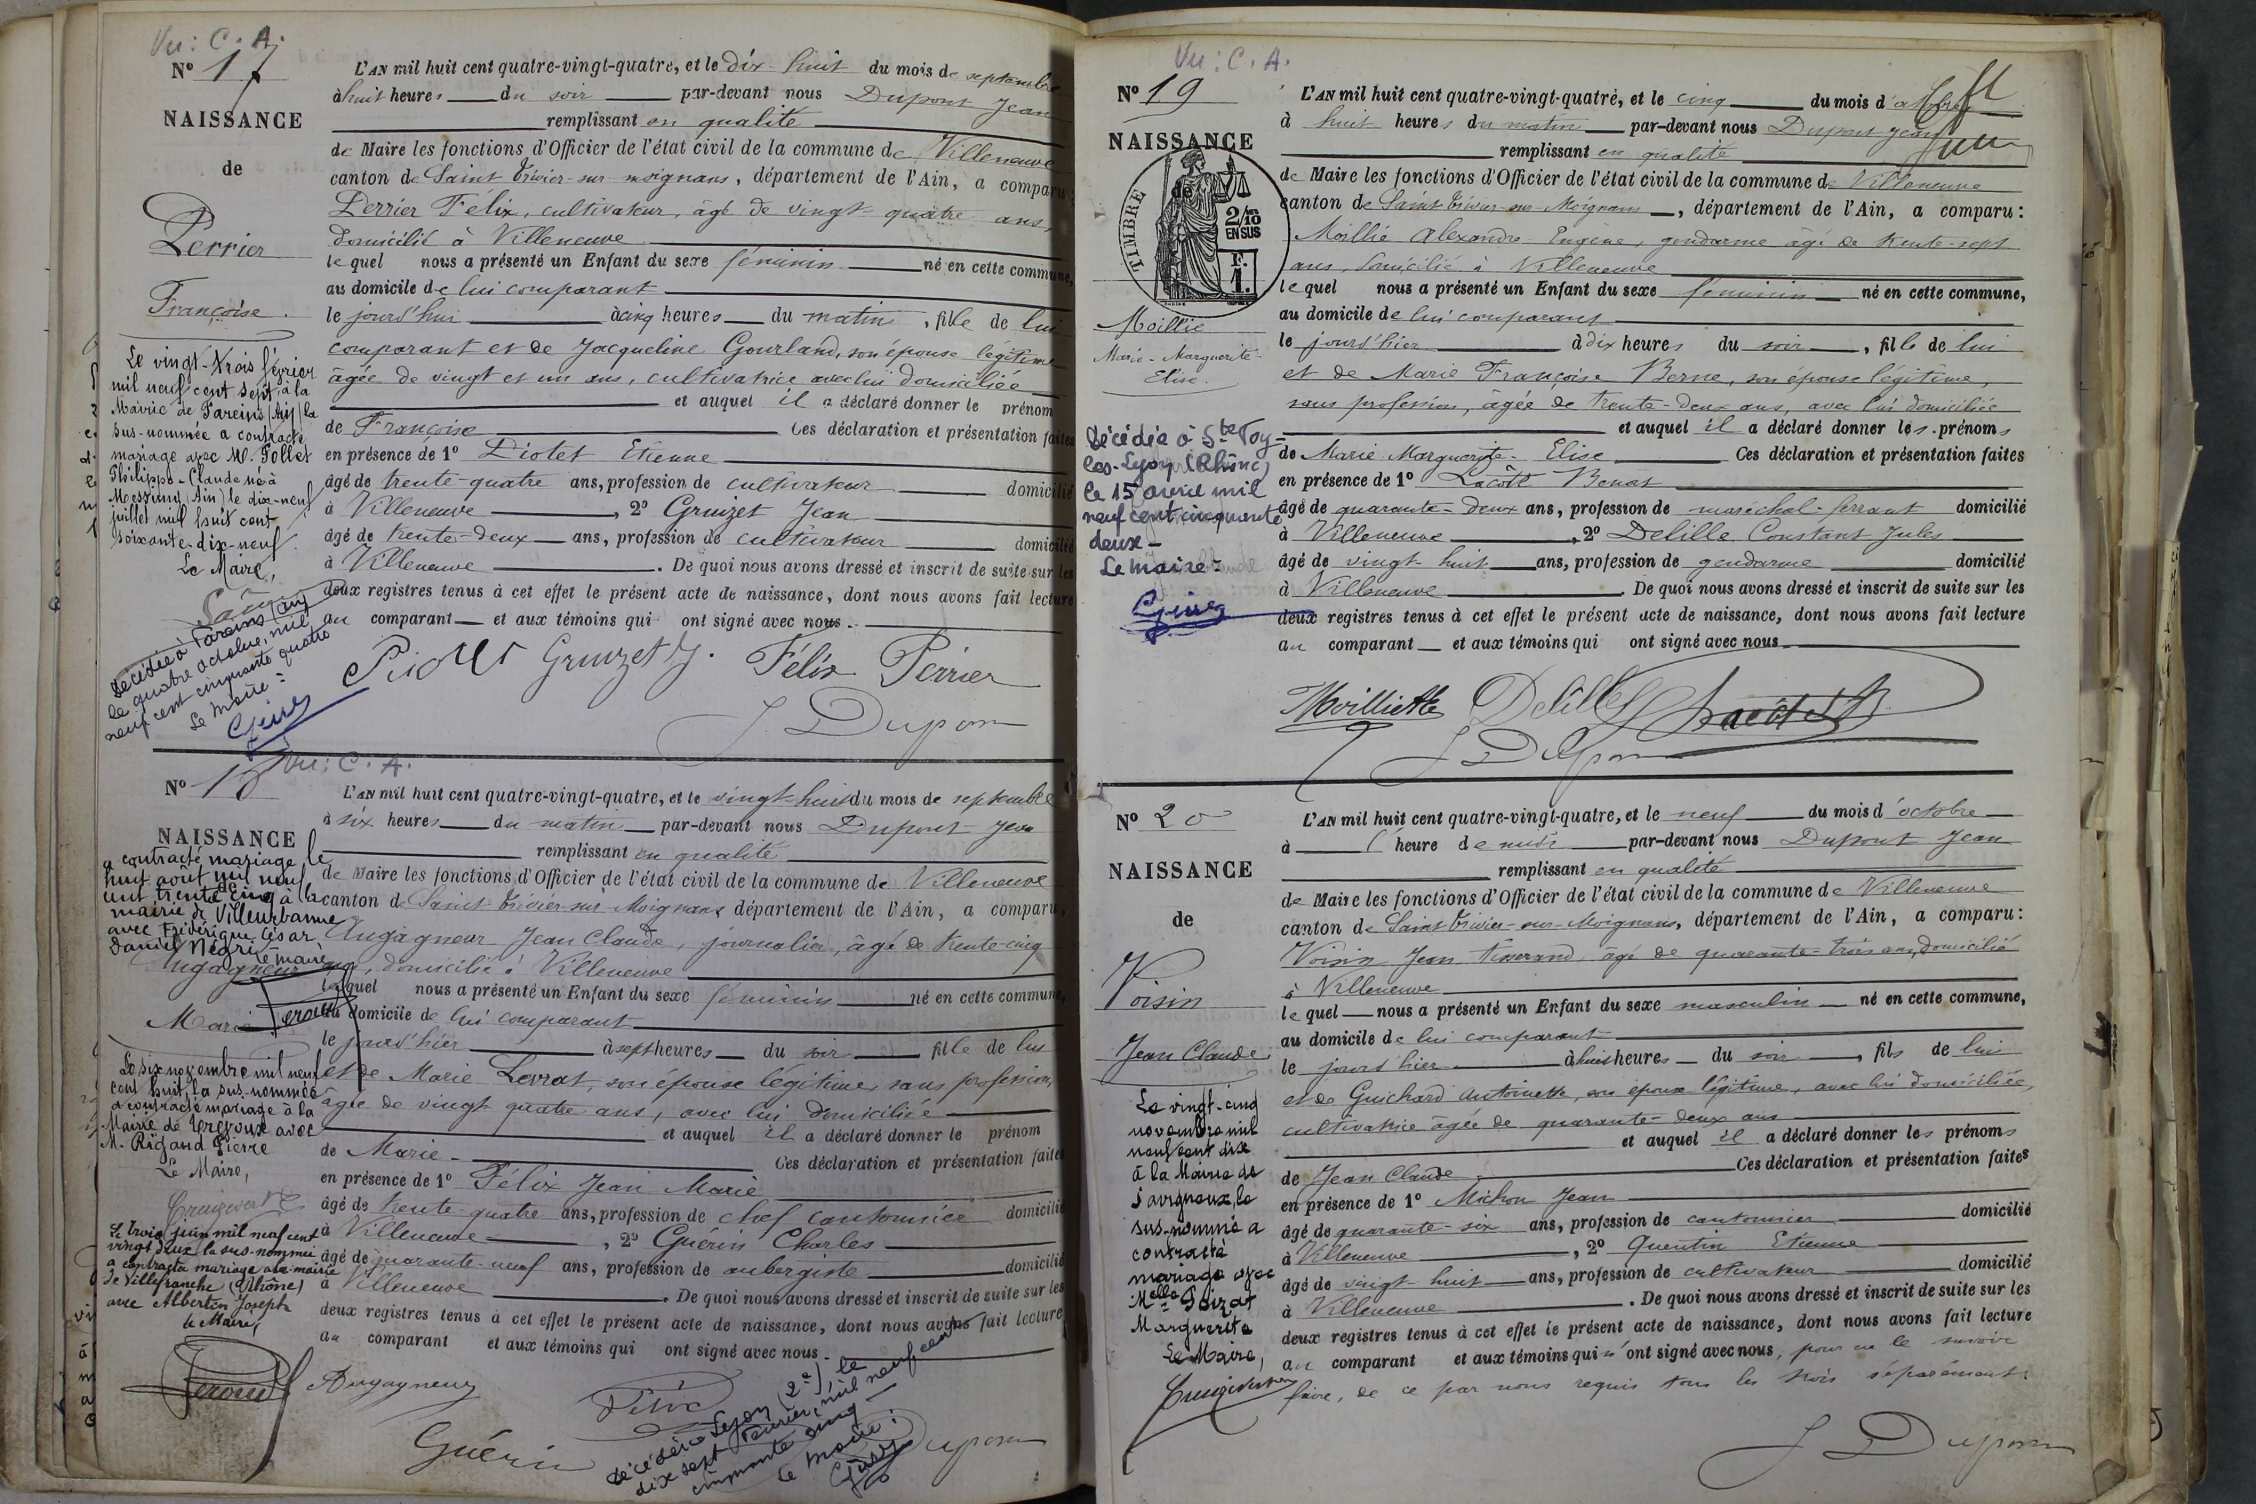 Vu : C. A.
N° 17
NAISSANCE
de
Perrier
Françoise.
Le vingt-trois février
mil neuf cent sept, à la
Mairie de Fareins (Ain) la
sus-nommée a contracté
mariage avec M. Follet
Philippe-Claude né à
Messimy (Ain) le dix-neuf
juillet mil huit cent
soixante-dix-neuf.
Le Maire,
Décédée à Fareins (Ain)
le quatre octobre, mil
neuf cent cinquante quatre
Le Maire :
L'AN mil huit cent quatre-vingt-quatre, et le dix huit du mois de septembre
à huit heures du soir par-devant nous Dupont Jean
remplissant en qualité
de Maire les fonctions d'Officier de l'état civil de la commune de Villeneuve
canton de Saint Trivier-sur-moignans, département de l'Ain, a comparu :
Perrier Félix, cultivateur, âgé de vingt-quatre ans,
domicilié à Villeneuve
lequel nous a présenté un Enfant du sexe féminin né en cette commune,
au domicile de lui comparant
le jourd'hui à cinq heures du matin, fille de lui
comparant et de Jacqueline Gourland, son épouse légitime
âgée de vingt et un ans, cultivatrice avec lui domiciliée
et auquel il a déclaré donner le prénom
de Françoise Ces déclaration et présentation faites
en présence de 1° Piotet Etienne
âgé de trente-quatre ans, profession de cultivateur domicilié
à Villeneuve, 2° Gruizet Jean
âgé de trente-deux ans, profession de cultivateur domicilié
à Villeneuve. De quoi nous avons dressé et inscrit de suite sur les
deux registres tenus à cet effet le présent acte de naissance, dont nous avons fait lecture
au comparant et aux témoins qui ont signé avec nous.
Piotet Gruizet J. Félix Perrier
J Dupont
Vu : C. A.
N° 18
NAISSANCE
de
a contracté mariage le
huit août mil neuf
cent trente cinq à la
mairie de Villeurbanne
avec Frédérique César
Daniel Négri
Le maire
Augagneur
Marie
Le six novembre mil neuf
cent huit, la sus-nommée
a contracté mariage à la
Mairie de Trévoux avec
M. Rigaud Pierre
Le Maire,
Le trois juin mil neuf cent
vingt deux la sus-nommée
a contracté mariage à la mairie
de Villefranche (Rhône)
avec Albertin Joseph
Le Maire,
L'AN mil huit cent quatre-vingt-quatre, et le vingt-huit du mois de septembre
à six heures du matin par-devant nous Dupont Jean
remplissant en qualité
de Maire les fonctions d'Officier de l'état civil de la commune de Villeneuve
canton de Saint Trivier-sur-Moignans département de l'Ain, a comparu,
Augagneur Jean Claude, journalier, âgé de trente-cinq
ans, domicilié à Villeneuve
lequel nous a présenté un Enfant du sexe féminin né en cette commune,
au domicile de lui comparant
le jourd'hier à sept heures du soir fille de lui
et de Marie Levrat, son épouse légitime, sans profession,
âgée de vingt quatre ans, avec lui domiciliée
et auquel il a déclaré donner le prénom
de Marie Ces déclaration et présentation faites
en présence de 1° Félix Jean Marie
âgé de trente-quatre ans, profession de chef cantonnier domicilié
à Villeneuve, 2° Guérin Charles
âgé de quarante-neuf ans, profession de aubergiste domicilié
à Villeneuve. De quoi nous avons dressé et inscrit de suite sur les
deux registres tenus à cet effet le présent acte de naissance, dont nous avons fait lecture
au comparant et aux témoins qui ont signé avec nous.
Augagneur
Félix
Guérin
Dupont
Décédée à Lyon (2e), le
dix sept février, mil neuf cent
cinquante cinq
Le Maire :
Vu : C. A.
N° 19
NAISSANCE
de
TIMBRE
2/10 EN SUS
F. 1.
Moillie
Marie-Marguerite-
Elise.
Décédée à Ste Foy-
les-Lyon (Rhône)
le 15 avril mil
neuf cent cinquante
deux-
Le maire :
L'AN mil huit cent quatre-vingt-quatre, et le cinq du mois d'octobre
à huit heures du matin par-devant nous Dupont Jean
remplissant en qualité
de Maire les fonctions d'Officier de l'état civil de la commune de Villeneuve
canton de Saint Trivier-sur-Moignans, département de l'Ain, a comparu :
Moillie Alexandre Eugène, gendarme âgé de trente-sept
ans, domicilié à Villeneuve
lequel nous a présenté un Enfant du sexe féminin né en cette commune,
au domicile de lui comparant
le jourd'hier à dix heures du soir, fille de lui
et de Marie Françoise Berne, son épouse légitime,
sans profession, âgée de trente-deux ans, avec lui domiciliée
et auquel il a déclaré donner les prénoms
de Marie Marguerite-Elise Ces déclaration et présentation faites
en présence de 1° Lacôte Benoit
âgé de quarante-deux ans, profession de maréchal-ferrant domicilié
à Villeneuve, 2° Delille Constant Jules
âgé de vingt-huit ans, profession de gendarme domicilié
à Villeneuve. De quoi nous avons dressé et inscrit de suite sur les
deux registres tenus à cet effet le présent acte de naissance, dont nous avons fait lecture
au comparant et aux témoins qui ont signé avec nous
Delille
J Dupont
N° 20
NAISSANCE
de
Voisin
Jean Claude
Le vingt-cinq
novembre mil
neuf cent dix
à la Mairie de
Savigneux, le
sus-nommé a
contracté
mariage avec
Melle Poizat
Marguerite
Le Maire,
L'AN mil huit cent quatre-vingt-quatre, et le neuf du mois d'octobre
à l'heure de midi par-devant nous Dupont Jean
remplissant en qualité
de Maire les fonctions d'Officier de l'état civil de la commune de Villeneuve
canton de Saint Trivier-sur-Moignans, département de l'Ain, a comparu :
Voisin Jean tisserand âgé de quarante-trois ans, domicilié
à Villeneuve
lequel nous a présenté un Enfant du sexe masculin né en cette commune,
au domicile de lui comparant
le jourd'hier à huit heures du soir, fils de lui
et de Guichard Antoinette, son épouse légitime, avec lui domiciliée,
cultivatrice âgée de quarante-deux ans
et auquel il a déclaré donner les prénoms
de Jean Claude Ces déclaration et présentation faites
en présence de 1° Michon Jean
âgé de quarante-six ans, profession de cantonnier domicilié
à Villeneuve, 2° Quentin Etienne
âgé de vingt-huit ans, profession de cultivateur domicilié
à Villeneuve. De quoi nous avons dressé et inscrit de suite sur les
deux registres tenus à cet effet le présent acte de naissance, dont nous avons fait lecture
au comparant et aux témoins qui n'ont signé avec nous, pour ne le savoir
faire, de ce par nous requis tous les trois séparément.
J Dupont